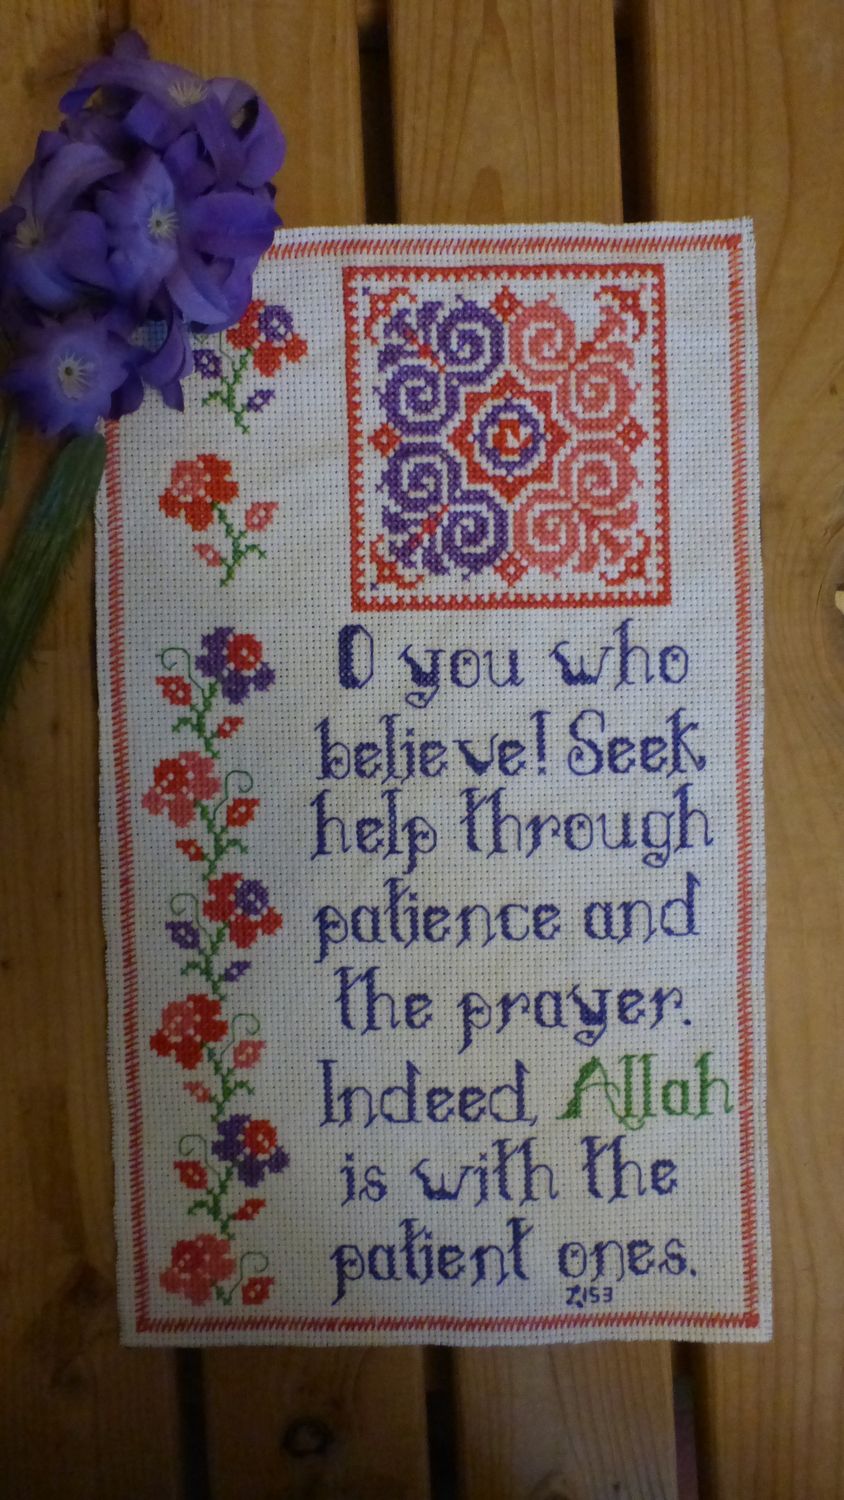 O you who
believe! Seek
help through
patience and
the prayer.
Indeed, Allah
is with the
patient ones.
2,153